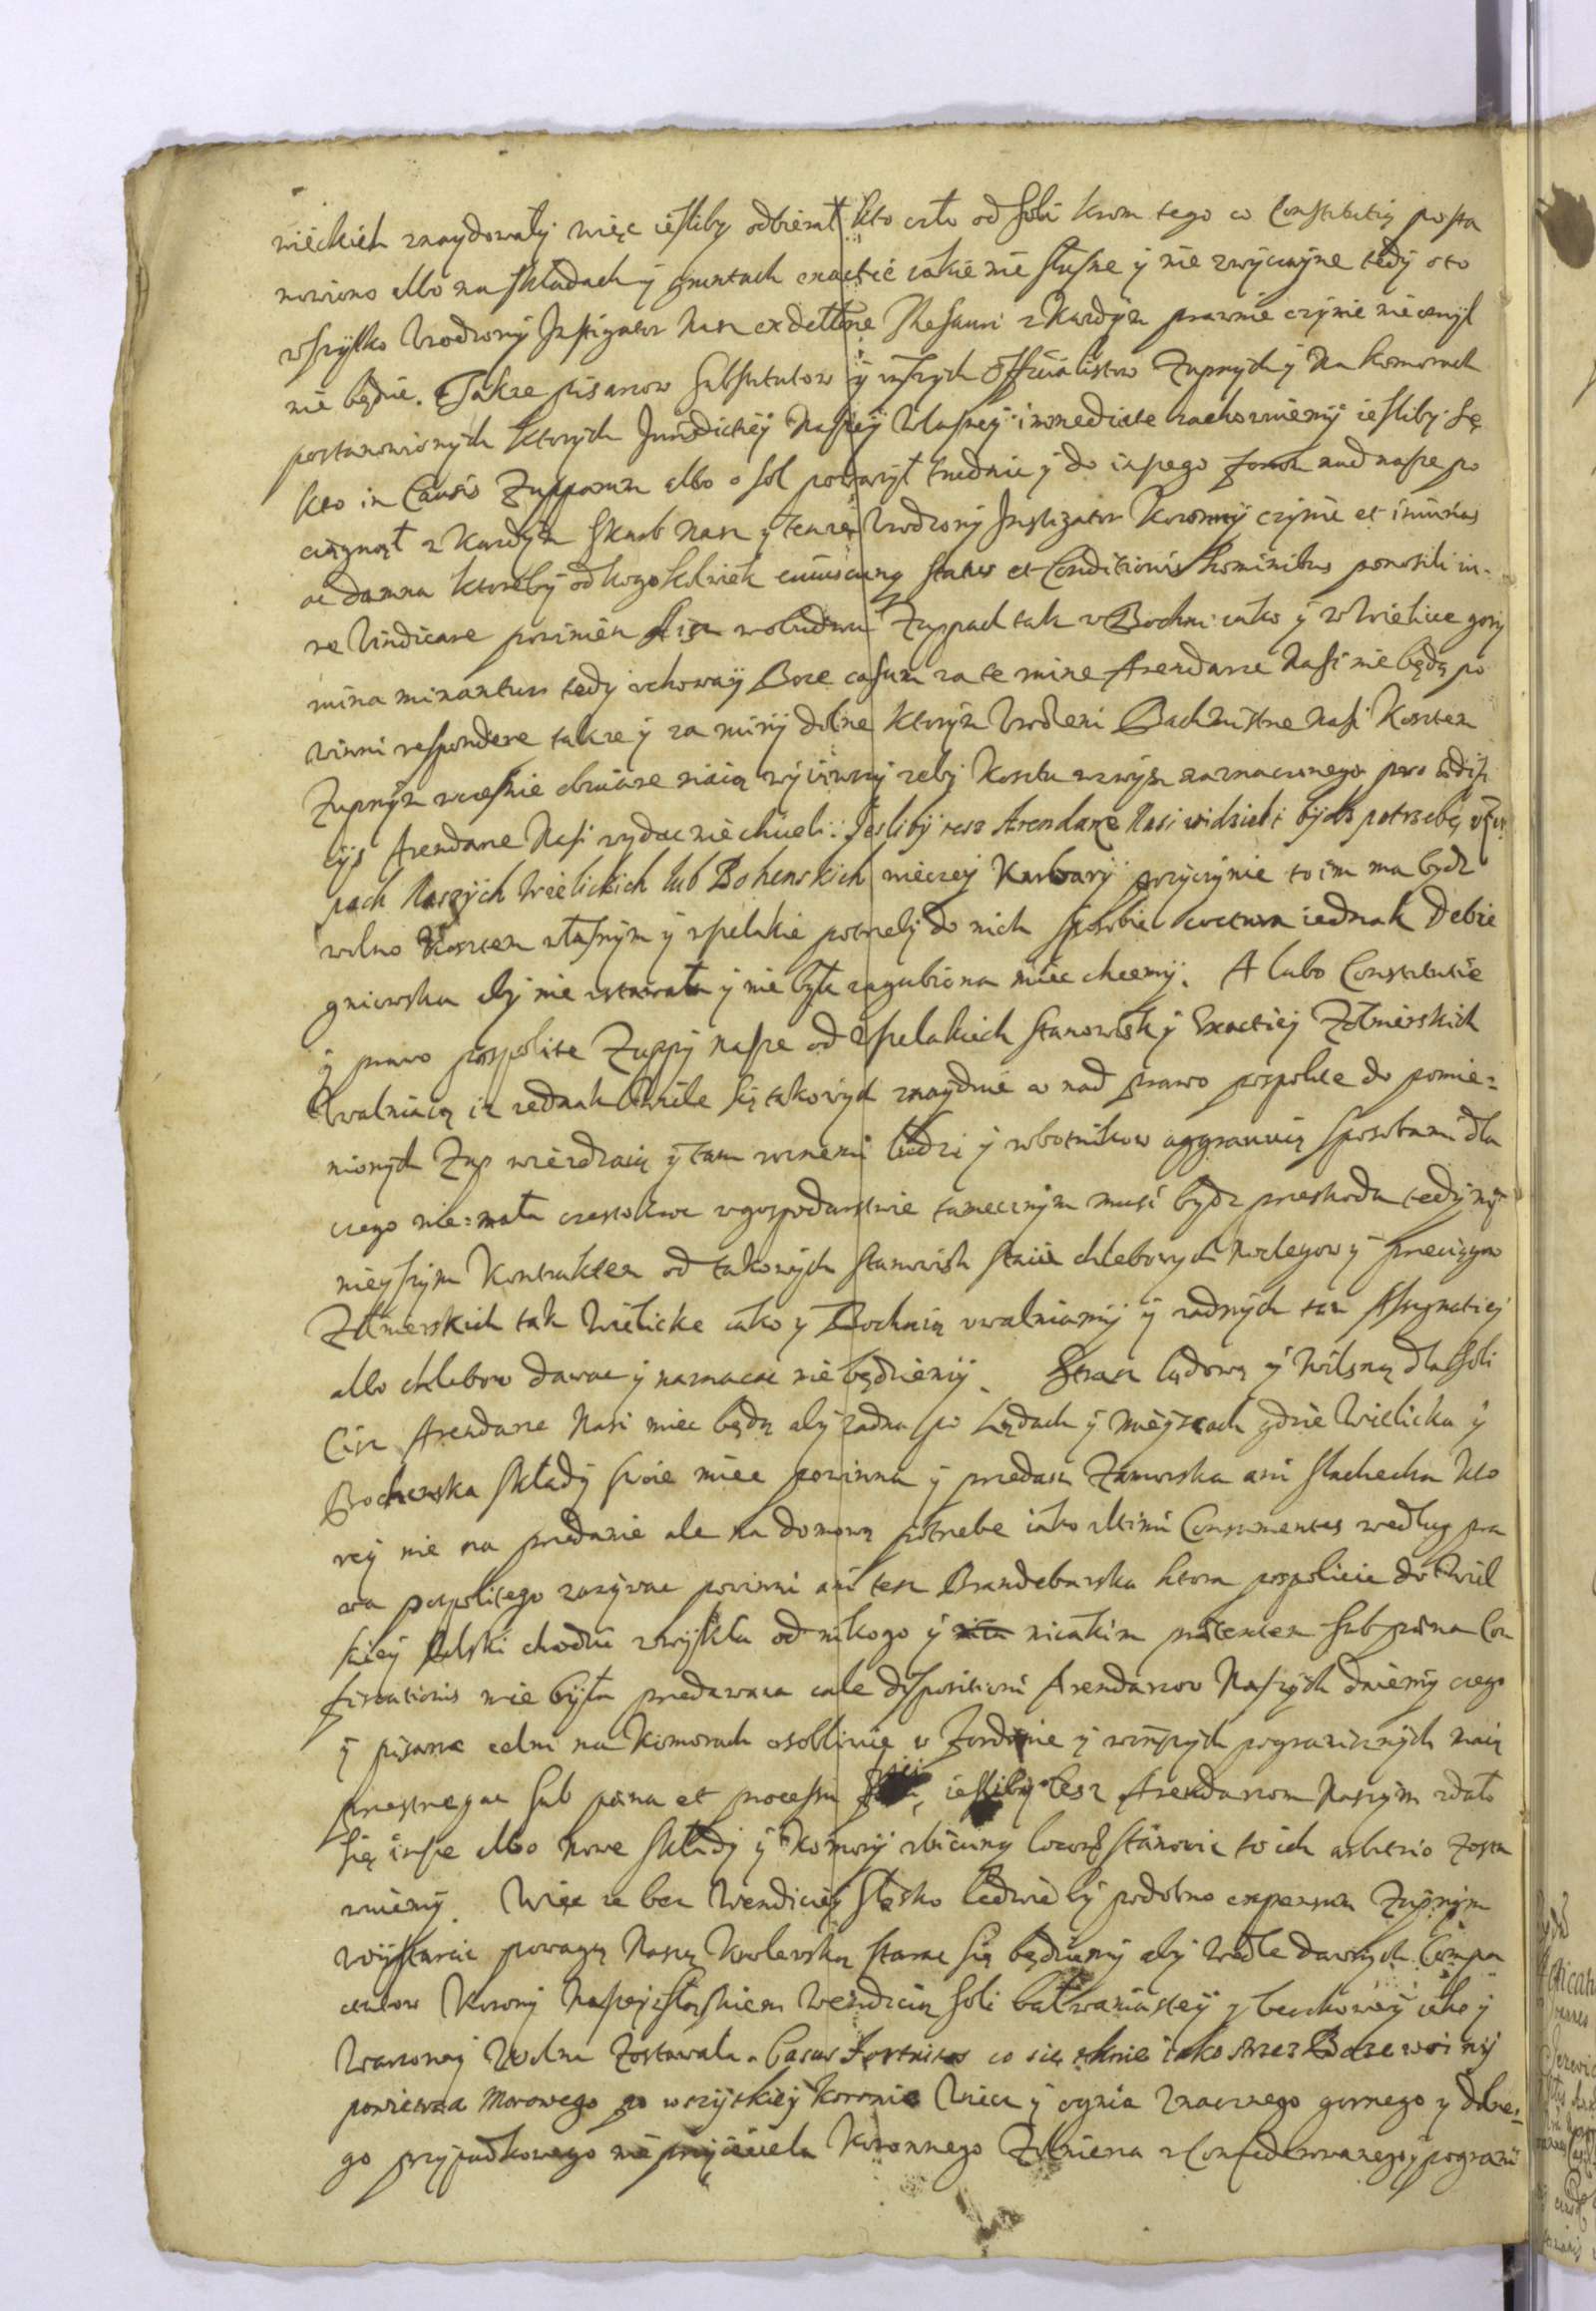 wieckich znaydowały więc iesliby odbierał kto czło od Soli krom tego co Constitutią posta
nowiono albo na składach y gruntach exactie iakie nie słusne y nie zwyczayne tedy o to
wszytko Urodzony Instigator Nasz ex delatione Thesauri z kazdym prawnie czynic nieomyl
nie będzie. Takze pisarzow Substitutow y inszych Officialistow Zupnych y na komorach
postanowionych ktorych Jurisdictiey Naszey Własney immediate zachowuiemy iesliby się
kto in Causis Zupparum albo o sol powazył trudnic y do inszego forum nad nasze po
ciągnął z kazdym Skarb Nasz y tenze Urodzony Instigator Koronny czynic et iniurias
ac damna ktoreby od kogozkolwiek cuiuscunq status et Conditionis hominibus ponosili iu-
re Vindicare powinien Aisz w obudwu Zuppach tak w Bochni iako y w Wielice gory
ruina minantur tedy uchoway Boze casum za te ruine Arendarze Nasi nie będą po
winni respondere takze y za ruiny dolne ktorym Urodzeni Bachmistrze Nasi Kosztem
Zupnym wczesnie obwarze maią wyiąwszy zeby kosztu wzwysz zaznaczonego pro ædifi
cijs Arendarze Nasi wydac nie chcieli: Jesliby tesz Arendarze Nasi widzieli bydz potrzebę w Zu
pach Naszych Wielickich lub Bohenskich wieczey Karbary przyczynic to im ma bydz
wolno kosztem własnym y wszelakie potrzeby do nich sposobic coctura iednak Debie
gniewska aby nie ustawała y nie była zagubiona miec chcemy. A lubo Constitutie
y prawo pospolite Zuppy nasze od wszelakich Stanowisk y Exactiey Zołnierskich
Uwalniaią isz iednak Wiele się takowych znayduie co nad prawo pospolite do pomie=
nionych Zup wiezdzaią y tam roznemi ludzi y robotnikow aggravuią sposobami dla
czego nie=mała czestokroc w gospodarstwie tamecznym musi bydz przeskoda tedy ni
nieyszym Kontraktem od takowych Stanowisk Stacie chlebowych Noclegow y przeciągow
Zołnierskich tak Wielicke iako y Bochnią uwalniamy y zadnych tam Assygnatiey
albo chlebow dawac y naznaczac nie będziemy. Straz lądową y Wilsną dla Soli
Cisz Arendarze Nasi miec będą aby zadna po Lądach y mieyscach gdzie Wielicka y
Bochenska składy swoie miec powinna y przedasz Zamorska ani slachecka kto
rey nie na przedanie ale na domową potrzebe iako ultimi Consumentes według pra
wa pospolitego zazywac powinni ani tesz Brandeburska ktora pospolicie do Wiel
kiey Polski chodzic zwykła od nikogo y niiakim prætextem sub pæna Con
fiscationis nie była przedawana całe dispositioni Arendarzow Naszych daiemy czego
y pisarze celni na Komorach osobliwie w Fordonie y w inszych pogranicznych maią
przestrzegac sub pæna et processu iesliby tesz Arendarzom Naszym zdało
się insze albo nowe składy y Komory ubicunq locorum stanowic to ich arbitrio zosta
wuiemy. Więc ze bez Wendiciey Slæsko ledwie by podobno expensom Zupnym
wystarcic powagą Naszą Krolewską starac się będziemy aby wedle dawnych Compa
ctatow Korony Naszey z Sląskiem Wendicia Soli bałwaniastey y beczkowey iako y
Warzoney Wolna Zostawała. Casus Fortuitos co się tknie iako strzez Boze woiny
powietrza Morowego po wszytkiey Koronie Unicz y ognia Znacznego gornego y dolne-
go przypadkowego nieprzyiaciela Koronnego Zołnierza z Confederowanego y pograni